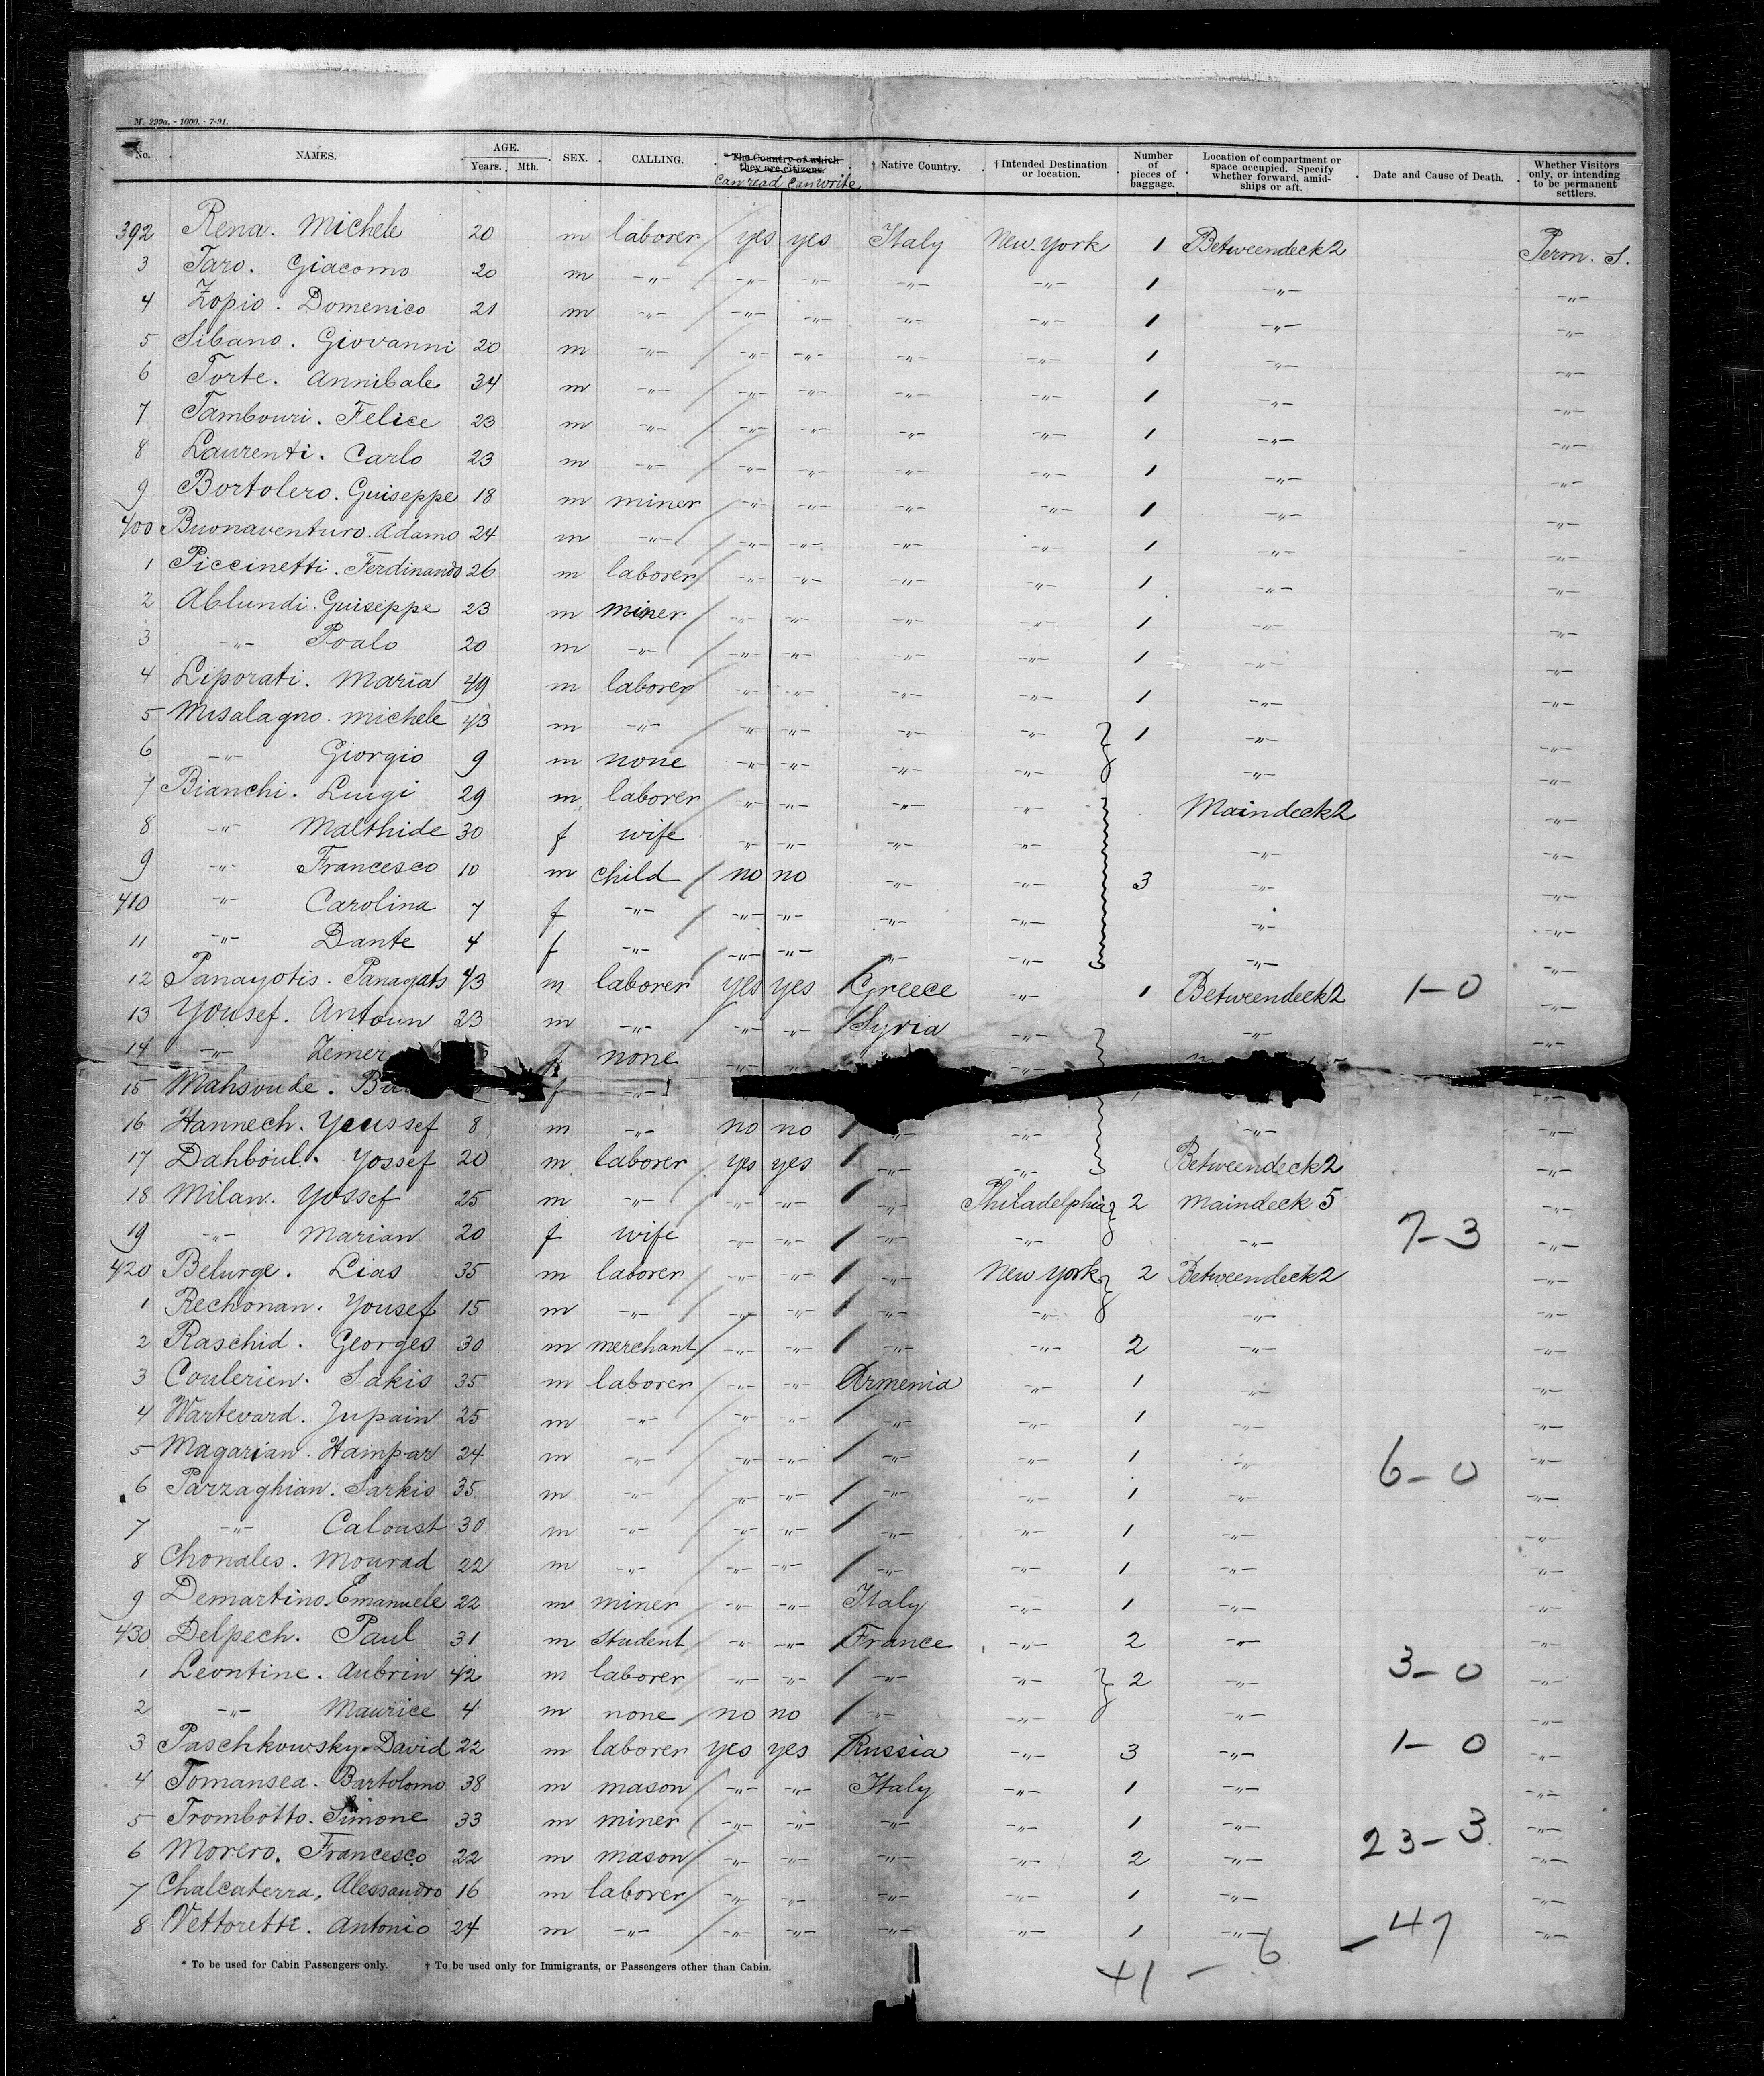 M. 299a. - 1000. - 7-91.
No. NAMES. AGE. Years. Mth. SEX. CALLING. * The Country of which they are citizens. Can read Can write † Native Country. † Intended Destination or location. Number of pieces of baggage. Location of compartment or space occupied. Specify whether forward, amidships or aft. Date and Cause of Death. Whether Visitors only, or intending to be permanent settlers.
392 Rena. Michele 20 m laborer yes yes Italy New York 1 Betweendeck 2 Perm. S.
3 Taro. Giacomo 20 m -"- -"- -"- -"- -"- 1 -"- -"-
4 Zopio. Domenico 21 m -"- -"- -"- -"- -"- 1 -"- -"-
5 Sibano. Giovanni 20 m -"- -"- -"- -"- -"- 1 -"- -"-
6 Torte. Annibale 34 m -"- -"- -"- -"- -"- 1 -"- -"-
7 Tambouri. Felice 23 m -"- -"- -"- -"- -"- 1 -"- -"-
8 Laurenti. Carlo 23 m -"- -"- -"- -"- -"- 1 -"- -"-
9 Bortolero. Guiseppe 18 m miner -"- -"- -"- -"- 1 -"- -"-
400 Buonaventuro. Adamo 24 m -"- -"- -"- -"- -"- 1 -"- -"-
1 Piccinetti. Ferdinando 26 m laborer -"- -"- -"- -"- 1 -"- -"-
2 Ablundi. Guiseppe 23 m miner -"- -"- -"- -"- 1 -"- -"-
3 -"- Poalo 20 m -"- -"- -"- -"- -"- 1 -"- -"-
4 Liporati. Maria 49 m laborer -"- -"- -"- -"- 1 -"- -"-
5 Misalagno. Michele 43 m -"- -"- -"- -"- -"- 1 -"- -"-
6 -"- Giorgio 9 m none -"- -"- -"- -"- -"- -"-
7 Bianchi. Luigi 29 m laborer -"- -"- -"- -"- Maindeck 2 -"-
8 -"- Malthide 30 f wife -"- -"- -"- -"- -"- -"-
9 -"- Francesco 10 m child no no -"- -"- 3 -"- -"-
410 -"- Carolina 7 f -"- -"- -"- -"- -"- -"- -"-
11 -"- Dante 4 f -"- -"- -"- -"- -"- -"- -"-
12 Panayotis. Panagats 43 m laborer yes yes Greece -"- 1 Betweendeck 2 1-0 -"-
13 Yousef. Antoun 23 m -"- -"- -"- Syria -"- -"- -"-
14 -"- Zemer f none -"- -"- -"- -"-
15 Mahsoude. f -"- -"-
16 Hannech. Youssef 8 m -"- no no -"- -"- -"- -"-
17 Dahboul. Yossef 20 m laborer yes yes -"- -"- Betweendeck 2 -"-
18 Milan. Yossef 25 m -"- -"- -"- -"- Philadelphia 2 Maindeck 5 -"-
19 -"- Marian 20 f wife -"- -"- -"- -"- -"- 7-3 -"-
420 Belurge. Lias 35 m laborer -"- -"- -"- New York 2 Betweendeck 2 -"-
1 Rechonan. Yousef 15 m -"- -"- -"- -"- -"- -"- -"-
2 Raschid. Georges 30 m merchant -"- -"- -"- -"- 2 -"- -"-
3 Coulerien. Sakis 35 m laborer -"- -"- Armenia -"- 1 -"- -"-
4 Wartevard. Jupain 25 m -"- -"- -"- -"- -"- 1 -"- -"-
5 Magarian. Hampar 24 m -"- -"- -"- -"- -"- 1 -"- 6-0 -"-
6 Parzaghian. Sarkis 35 m -"- -"- -"- -"- -"- 1 -"- -"-
7 -"- Caloust 30 m -"- -"- -"- -"- -"- 1 -"- -"-
8 Chonales. Mourad 22 m -"- -"- -"- -"- -"- 1 -"- -"-
9 Demartino. Emanuele 22 m miner -"- -"- Italy -"- 1 -"- -"-
430 Delpech. Paul 31 m student -"- -"- France -"- 2 -"- -"-
1 Leontine. Aubrin 42 m laborer -"- -"- -"- -"- 2 -"- 3-0 -"-
2 -"- Maurice 4 m none no no -"- -"- -"- -"-
3 Paschkowsky. David 22 m laborer yes yes Russia -"- 3 -"- 1-0 -"-
4 Tomansea. Bartolomo 38 m mason -"- -"- Italy -"- 1 -"- -"-
5 Trombotto. Simone 33 m miner -"- -"- -"- -"- 1 -"- -"-
6 Morero. Francesco 22 m mason -"- -"- -"- -"- 2 -"- 23-3 -"-
7 Chalcaterra. Alessandro 16 m laborer -"- -"- -"- -"- 1 -"- -"-
8 Vettoretti. Antonio 24 m -"- -"- -"- -"- -"- 1 -"- -"-
41 - 6 - 47
* To be used for Cabin Passengers only. † To be used only for Immigrants, or Passengers other than Cabin.